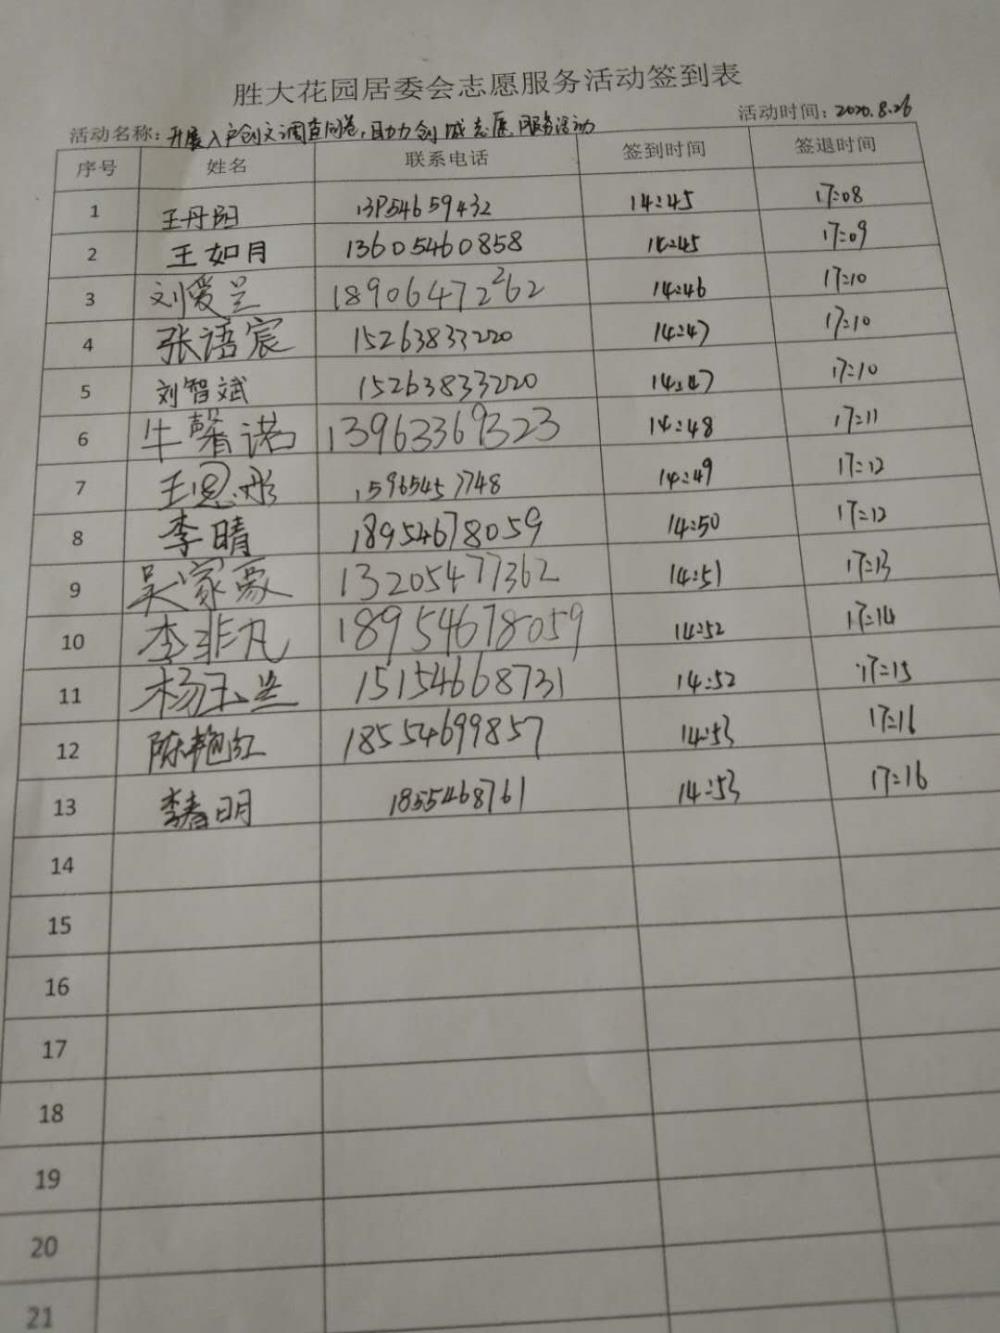 胜大花园居委会志愿服务活动签到表
活动名称：开展入户创文调查问卷，助力创城志愿服务活动 活动时间：2020.8.26
序号 姓名 联系电话 签到时间 签退时间
1 王丹阳 13954659432 14:45 17:08
2 王如月 13605460858 14:45 17:09
3 刘爱兰 18906472262 14:46 17:10
4 张语宸 15263833220 14:47 17:10
5 刘智斌 15263833220 14:47 17:10
6 牛馨诺 13963369323 14:48 17:11
7 王恩彤 15965457748 14:49 17:12
8 李晴 18954678059 14:50 17:12
9 吴家 13205477362 14:51 17:13
10 李非凡 18954678059 14:52 17:14
11 杨玉兰 15154668731 14:52 17:15
12 陈艳红 18554699857 14:53 17:16
13 李春明 1855468761 14:53 17:16
14
15
16
17
18
19
20
21